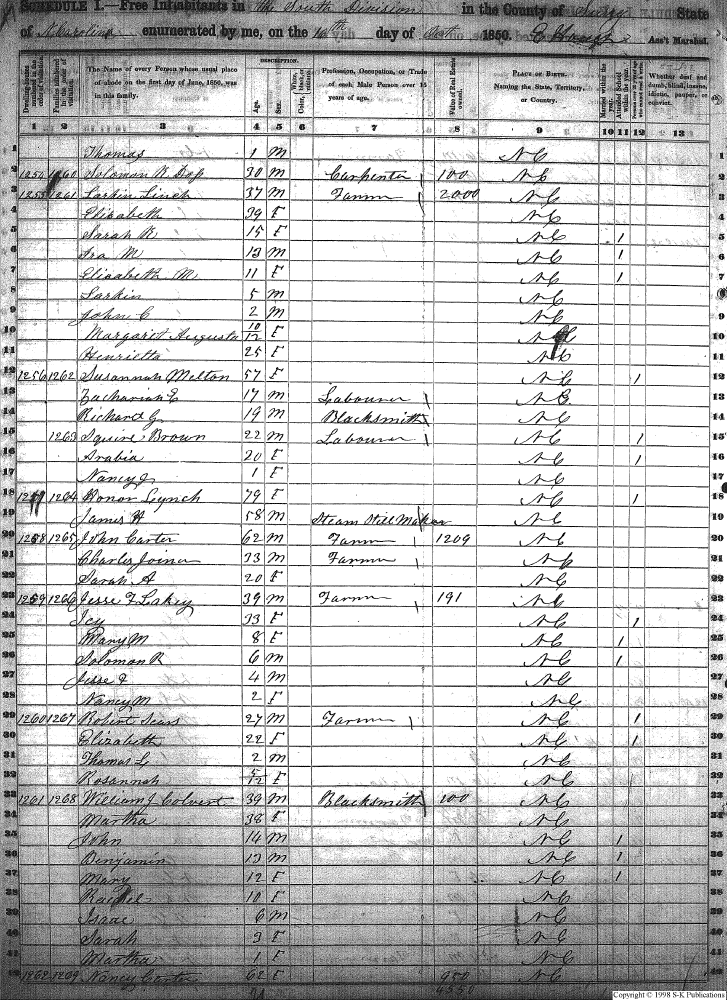 SCHEDULE I.—Free Inhabitants in the South Division in the County of Surry State
of N. Carolina enumerated by me, on the 16th day of Octo 1850. Ass't Marshal.
Dwelling-houses numbered in the order of visitation.
Families numbered in the order of visitation.
The Name of every Person whose usual place of abode on the first day of June, 1850, was in this family.
DESCRIPTION.
Age.
Sex.
White, black, or mulatto.
Color,
Profession, Occupation, or Trade of each Male Person over 15 years of age.
Value of Real Estate owned.
PLACE OF BIRTH. Naming the State, Territory, or Country.
Married within the year.
Attended School within the year.
Whether deaf and dumb, blind, insane, idiotic, pauper, or convict.
1 2 3 4 5 6 7 8 9 10 11 12 13
1 Thomas 1 M N C 1
2 1260 Solomon W 30 M Carpenter 100 N C 2
3 1261 Larkin Linch 37 M Farmer 2000 N C 3
4 Elizabeth 39 F N C 4
5 Sarah 15 F N C 1 5
6 Ira M 13 M N C 1 6
7 Elizabeth M 11 F N C 1 7
8 Larkin 5 M N C
9 John C 2 M N C 9
10 Margaret Augusta 10/12 F N C 10
11 Henrietta 25 F N C 11
12 1256 1262 Susannah Melton 57 F N C 1 12
13 Zachariah 17 M Labourer N C 13
14 Richard G 19 M Blacksmith N C 14
15 1263 Squire Brown 22 M Labourer N C 1 15
16 Arabia 20 F N C 1 16
17 Nancy J 1 F N C 17
18 1264 Honor Lynch 79 F N C 1 18
19 James H 58 M Steam Still Maker N C 19
20 1258 1265 John Carter 62 M Farmer 1209 N C 20
21 Charles Joiner 33 M Farmer N C 21
22 Sarah A 20 F N C 22
23 1259 1266 Jesse F Lakey 39 M Farmer 191 N C 23
24 Icy 33 F N C 1 24
25 Mary M 8 F N C 1 25
26 Solomon R 6 M N C 1 26
27 Jesse F 4 M N C 27
28 Nancy M 2 F N C 28
29 1260 1267 Robert Sears 27 M Farmer N C 1 29
30 Elizabeth 22 F N C 1 30
31 Thomas L 2 M N C 31
32 Rosannah F N C 32
33 1261 1268 William J Colvert 39 M Blacksmith 100 N C 33
34 Martha 38 F N C 34
35 John 14 M N C 1 35
36 Benjamin 13 M N C 1 36
37 Mary 12 F N C 1 37
38 Rachel 10 F N C 38
39 Isaac 6 M N C 39
40 Sarah 3 F N C 40
41 Martha 1 F N C 41
42 1262 1269 Nancy Carter 62 F 950 N C
4550
Copyright © 1998 S-K Publications